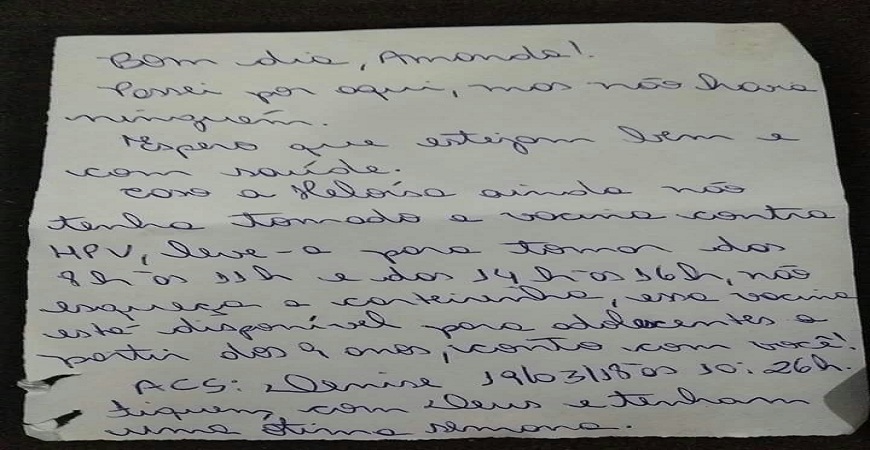 Bom dia, Amanda!
Passei por aqui, mas não havia
ninguém.
Espero que estejam bem e
com saúde.
Caso a Heloísa ainda não
tenha tomado a vacina contra
HPV, leve-a para tomar das
8h às 11h e das 14h às 16h, não
esqueça a carteirinha, essa vacina
está disponível para adolescentes a
partir dos 9 anos, conto com você!
ACS: Denise 19/03/18 às 10:26h.
Fiquem com Deus e tenham
uma ótima semana.